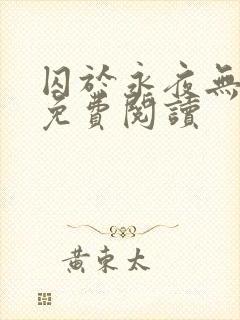 囚於永夜無
免費閱讀
黃東太